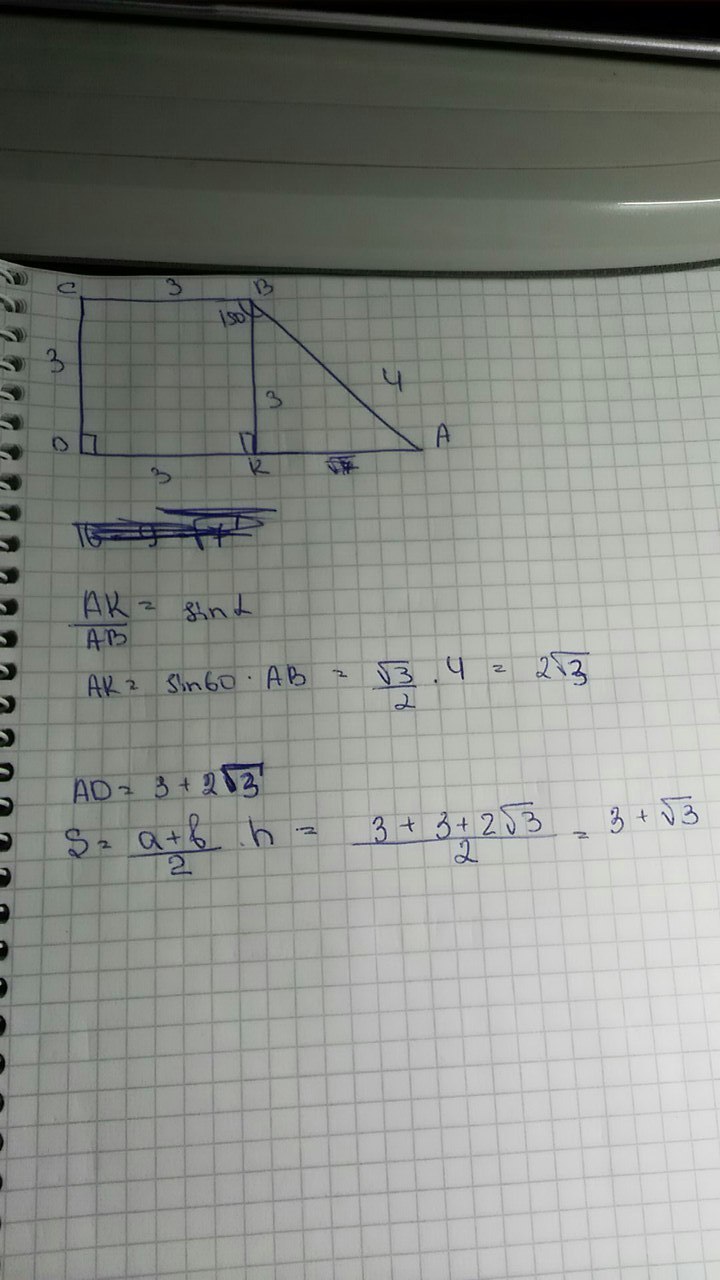 C 3 B
150
3 3 4
D K A
3
AK/AB = sin α
AK = sin60 · AB = √3/2 · 4 = 2√3
AD = 3 + 2√3
S = (a+b)/2 · h = (3 + 3 + 2√3)/2 = 3 + √3